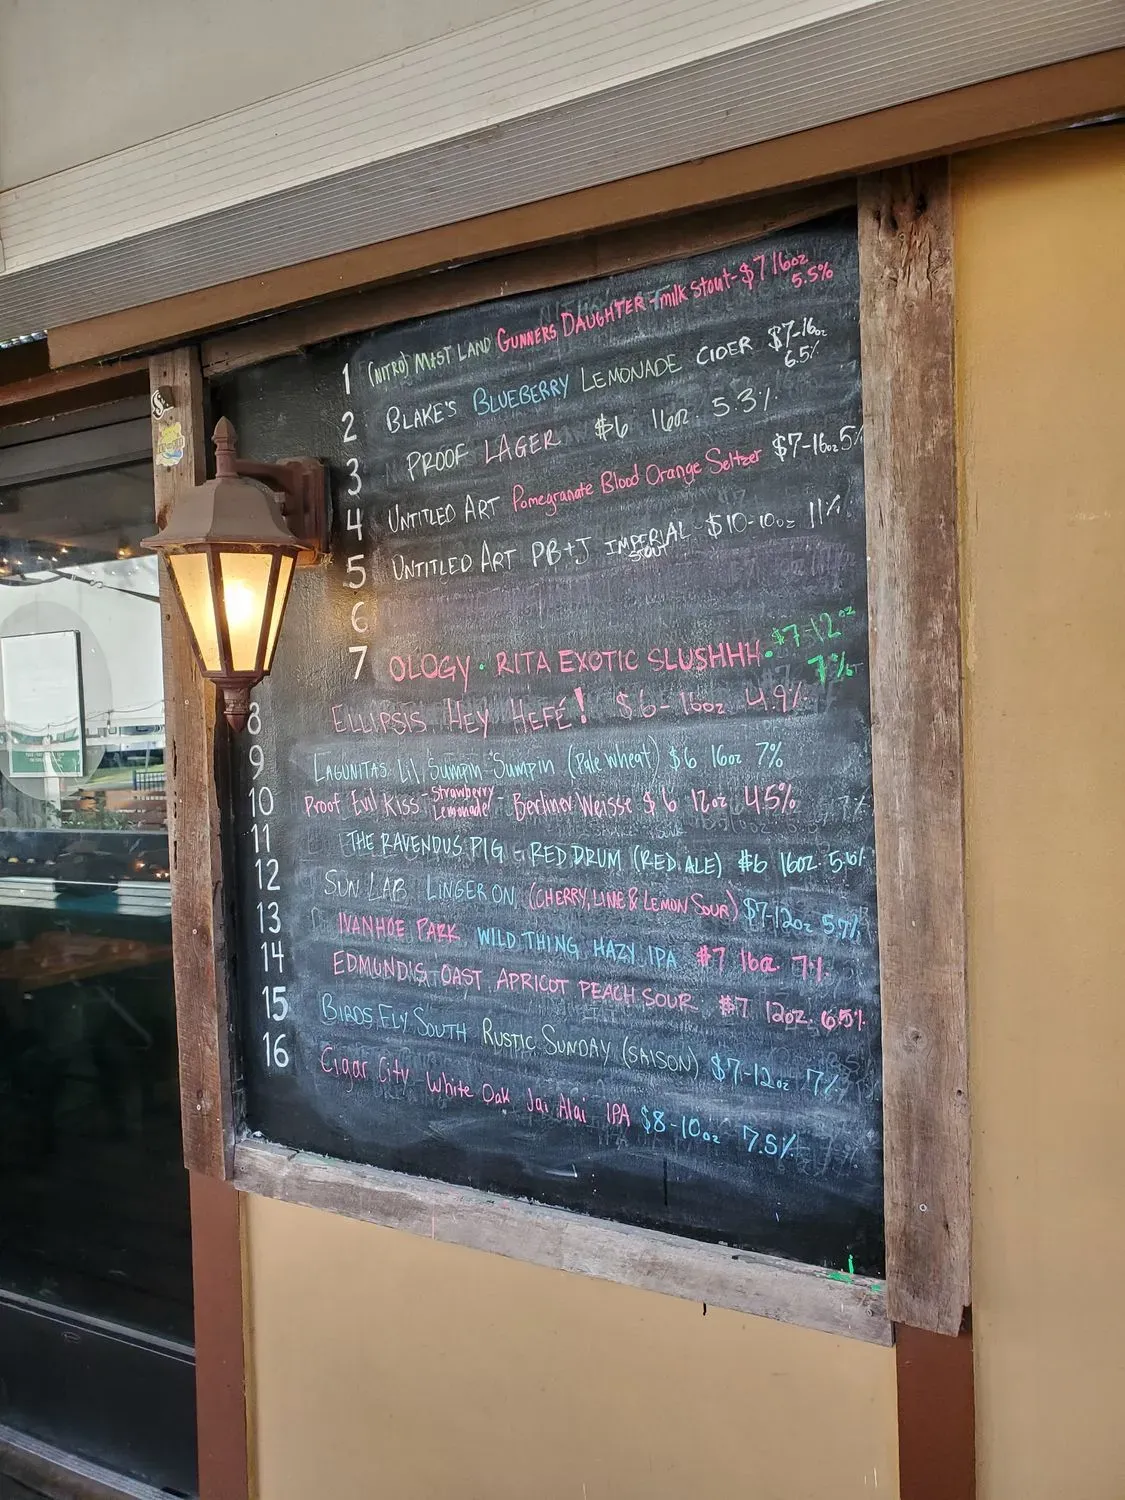 1 (NITRO) MAST LAND GUNNERS DAUGHTER - milk stout - $7 16oz 5.5%
2 BLAKE'S BLUEBERRY LEMONADE CIDER $7-16oz 6.5%
3 PROOF LAGER $6 16oz 5.3%
4 UNTITLED ART Pomegranate Blood Orange Seltzer $7-16oz 5%
5 UNTITLED ART PB+J IMPERIAL STOUT - $10-10oz 11%
6
7 OLOGY • RITA EXOTIC SLUSHHH • $7-12oz 7%
8 ELLIPSIS HEY HEFÉ! $6-16oz 4.9%
9 LAGUNITAS Lil Sumpin Sumpin (Pale Wheat) $6 16oz 7%
10 Proof Evil Kiss - Strawberry Lemonade - Berliner Weisse $6 12oz 4.5%
11 THE RAVENOUS PIG - RED DRUM (RED ALE) $6 16oz.
12 SUN LAB LINGER ON (CHERRY, LIME & LEMON SOUR) $7-12oz 5.7%
13 IVANHOE PARK WILD THING HAZY IPA $7 16oz. 7%
14 EDMUND'S OAST APRICOT PEACH SOUR $7 12oz. 6.5%
15 BIRDS FLY SOUTH RUSTIC SUNDAY (SAISON) $7-12oz 7%
16 Cigar City White Oak Jai Alai IPA $8-10oz 7.5%